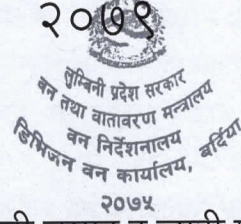 २०७९
लुम्बिनी प्रदेश सरकार
वन तथा वातावरण मन्त्रालय
वन निर्देशनालय
डिभिजन वन कार्यालय, बर्दिया
२०७५